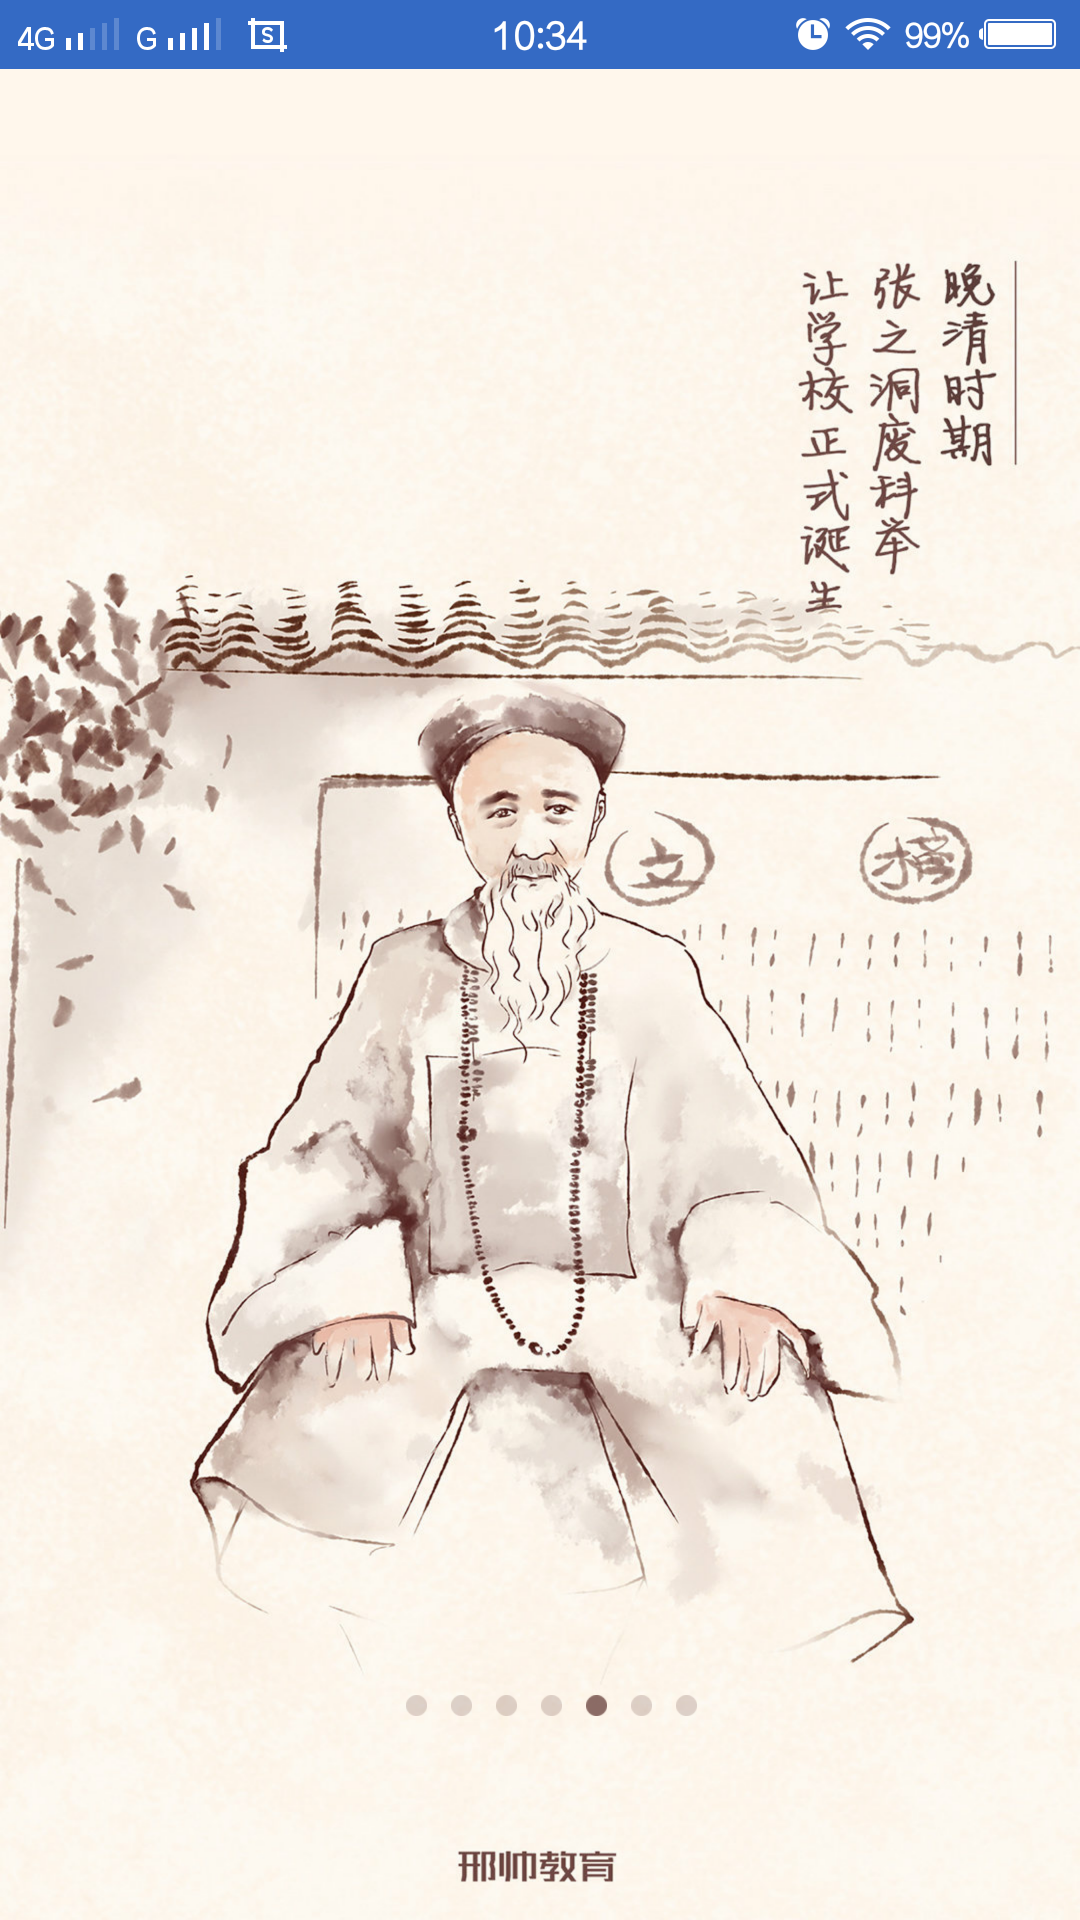 4G G S 10:34 99%
晚清时期
张之洞废科举
让学校正式诞生
文 榜
邢帅教育